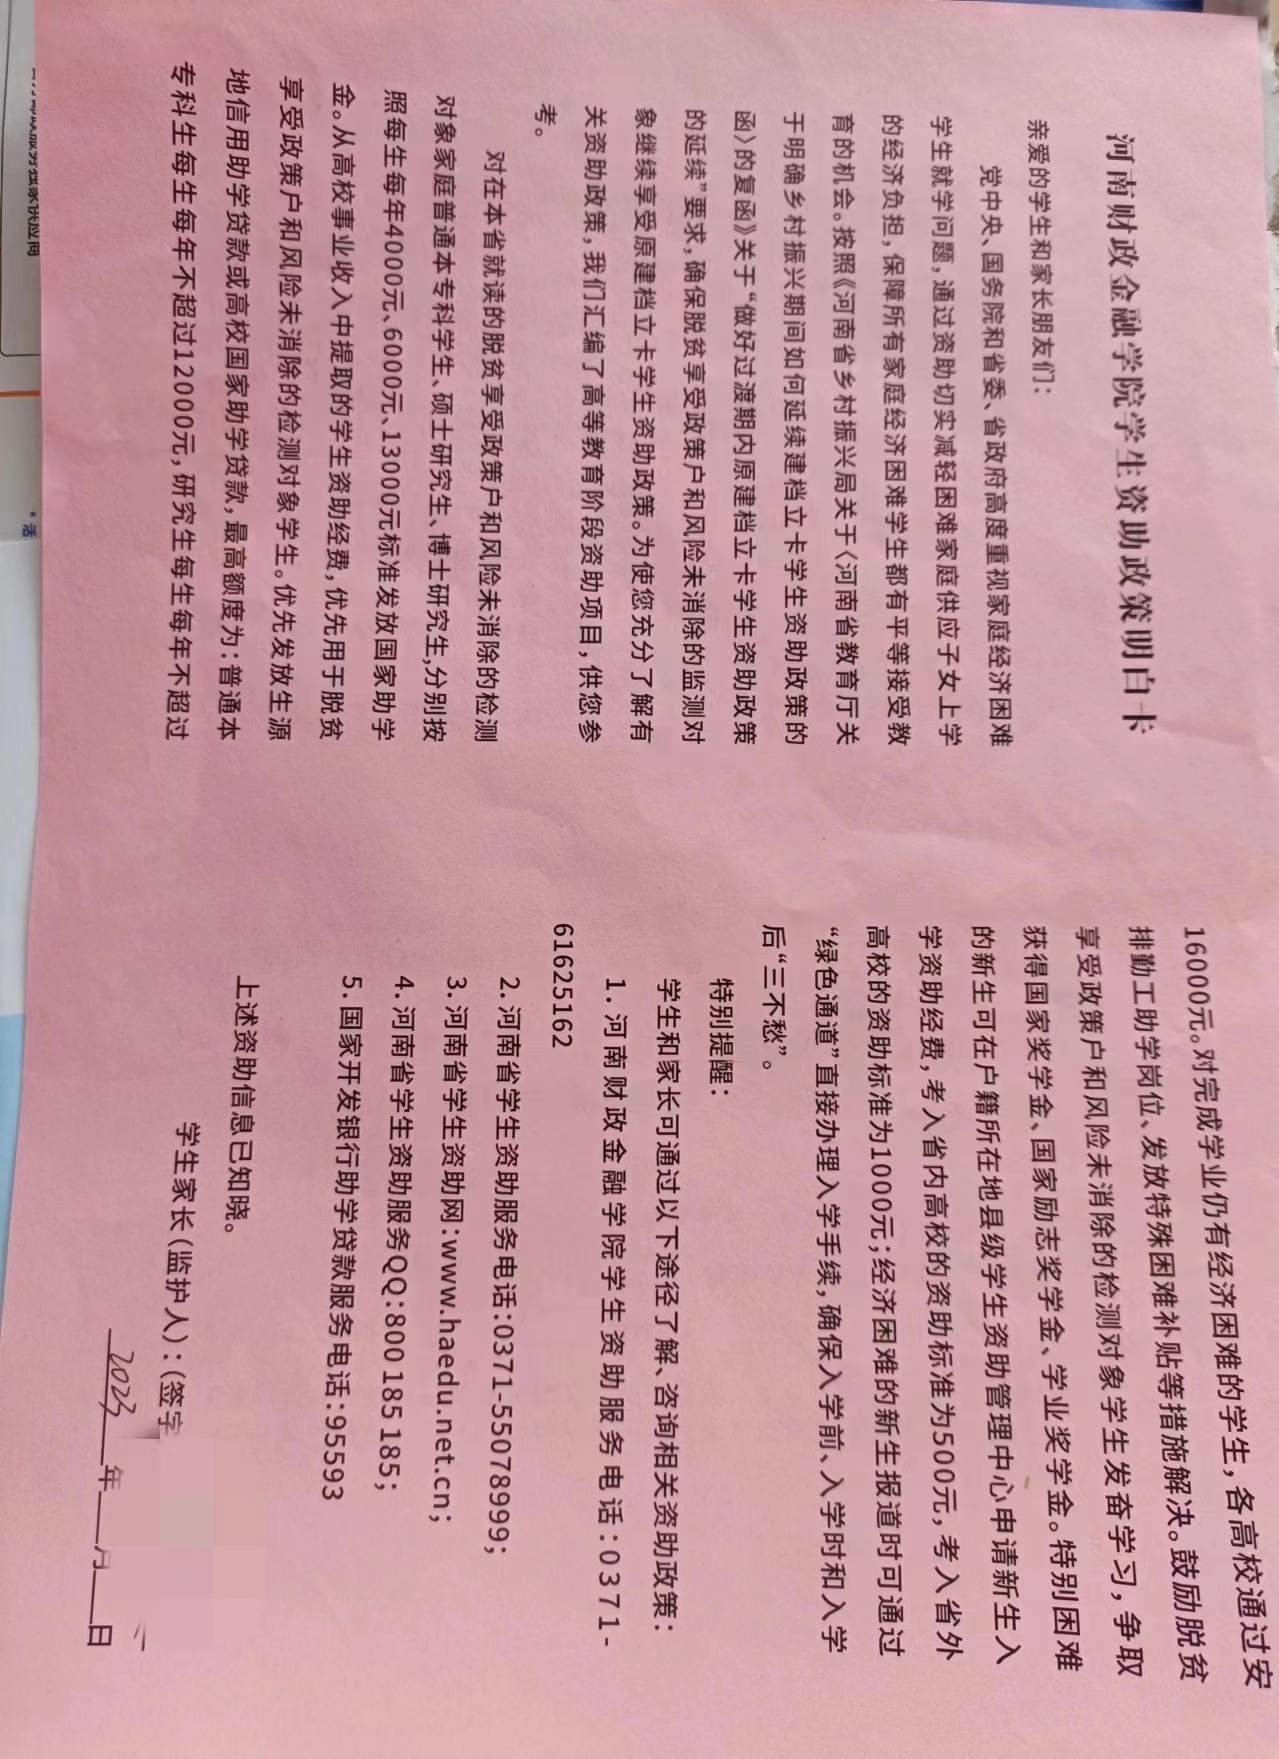 河南财政金融学院学生资助政策明白卡
亲爱的学生和家长朋友们：
党中央、国务院和省委、省政府高度重视家庭经济困难
学生就学问题，通过资助切实减轻困难家庭供应子女上学
的经济负担，保障所有家庭经济困难学生都有平等接受教
育的机会。按照《河南省乡村振兴局关于〈河南省教育厅关
于明确乡村振兴期间如何延续建档立卡学生资助政策的
函〉的复函》关于“做好过渡期内原建档立卡学生资助政策
的延续”要求，确保脱贫享受政策户和风险未消除的监测对
象继续享受原建档立卡学生资助政策。为使您充分了解有
关资助政策，我们汇编了高等教育阶段资助项目，供您参
考。
对在本省就读的脱贫享受政策户和风险未消除的检测
对象家庭普通本专科学生、硕士研究生、博士研究生,分别按
照每生每年4000元、6000元、13000元标准发放国家助学
金。从高校事业收入中提取的学生资助经费，优先用于脱贫
享受政策户和风险未消除的检测对象学生。优先发放生源
地信用助学贷款或高校国家助学贷款，最高额度为：普通本
专科生每生每年不超过12000元，研究生每生每年不超过
16000元。对完成学业仍有经济困难的学生，各高校通过安
排勤工助学岗位、发放特殊困难补贴等措施解决。鼓励脱贫
享受政策户和风险未消除的检测对象学生发奋学习，争取
获得国家奖学金、国家励志奖学金、学业奖学金。特别困难
的新生可在户籍所在地县级学生资助管理中心申请新生入
学资助经费，考入省内高校的资助标准为500元，考入省外
高校的资助标准为1000元；经济困难的新生报道时可通过
“绿色通道”直接办理入学手续，确保入学前、入学时和入学
后“三不愁”。
特别提醒：
学生和家长可通过以下途径了解、咨询相关资助政策：
1.河南财政金融学院学生资助服务电话：0371-
61625162
2.河南省学生资助服务电话：0371-55078999；
3.河南省学生资助网：www.haedu.net.cn；
4.河南省学生资助服务QQ：800185185；
5.国家开发银行助学贷款服务电话：95593
上述资助信息已知晓。
学生家长（监护人）：（签字
2023年 月 日